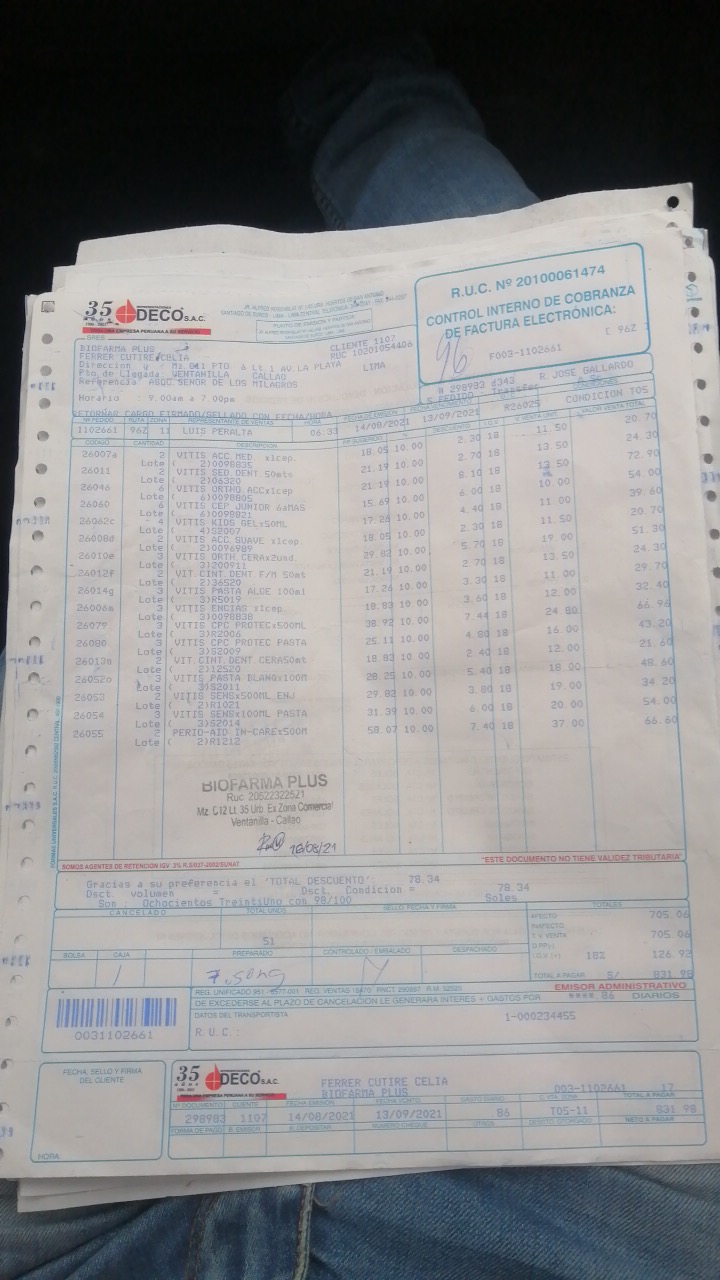 35 años
DECO S.A.C.
UNA EMPRESA PERUANA A SU SERVICIO
R.U.C. Nº 20100061474
CONTROL INTERNO DE COBRANZA
DE FACTURA ELECTRÓNICA:
F003-1102661
C 96Z
96
SRES
BIOFARMA PLUS
FERRER CUTIRE CELIA
CLIENTE 1107
RUC 10201054406
Direccion
Mz.B11 PTO 6 Lt 1 AV.LA PLATA LIMA
Pto de Llegada VENTANILLA CALLAO
Referencia ABQC SENOR DE LOS MILAGROS
Horario 9.00am a 7.00pm
R. JOSE GALLARDO
RETORNAR CARGO FIRMADO/SELLADO CON FECHA/HORA
Nº PEDIDO RUTA ZONA REPRESENTANTE DE VENTAS HORA FECHA EMISION CONDICIONES
1102661 96Z 11 LUIS PERALTA 06:33 14/08/2021 13/09/2021 R26025 CONDICION T05
CODIGO CANTIDAD DESCRIPCION DESCUENTO I.G.V. VALOR VENTA TOTAL
26007a 2 VITIS ACC.MED. x1cep. 18.05 10.00 2.30 18 11.50 20.70
Lote ( 2)0098835
26011 2 VITIS SED.DENT.50mts 21.19 10.00 2.70 18 13.50 24.30
Lote ( 2)06320
26046 6 VITIS ORTHO ACCx1cep 21.19 10.00 8.10 18 13.50 72.90
Lote ( 6)0098805
26060 6 VITIS CEP JUNIOR 6aMAS 15.69 10.00 6.00 18 10.00 54.00
Lote ( 6)0098821
26062c 4 VITIS KIDS GELx50ML 17.26 10.00 4.40 18 11.00 39.60
Lote ( 4)S2007
26008d 2 VITIS ACC.SUAVE x1cep. 18.05 10.00 2.30 18 11.50 20.70
Lote ( 2)0096989
26010e 3 VITIS ORTH.CERAx2und. 29.82 10.00 5.70 18 19.00 51.30
Lote ( 3)200911
26012f 2 VIT.CINT.DENT.F/M 50mt 21.19 10.00 2.70 18 13.50 24.30
Lote ( 2)36520
26014g 3 VITIS PASTA ALOE 100ml 17.26 10.00 3.30 18 11.00 29.70
Lote ( 3)R5019
26006m 3 VITIS ENCIAS x1cep 18.83 10.00 3.60 18 12.00 32.40
Lote ( 3)0098838
26079 3 VITIS CPC PROTECx500ML 38.92 10.00 7.44 18 24.80 66.96
Lote ( 3)R2006
26080 3 VITIS CPC PROTEC PASTA 25.11 10.00 4.80 18 16.00 43.20
Lote ( 3)S2009
26013n 2 VIT.CINT.DENT.CERA50mt 18.83 10.00 2.40 18 12.00 21.60
Lote ( 2)12520
26052o 3 VITIS PASTA BLANQx100M 28.25 10.00 5.40 18 18.00 48.60
Lote ( 3)S2011
26053 2 VITIS SENSx500ML ENJ 29.82 10.00 3.80 18 19.00 34.20
Lote ( 2)R1021
26054 3 VITIS SENSx100ML PASTA 31.39 10.00 6.00 18 20.00 54.00
Lote ( 3)S2014
26055 2 PERIO-AID IN-CAREx500M 58.07 10.00 7.40 18 37.00 66.60
Lote ( 2)R1212
BIOFARMA PLUS
Ruc 20522322521
Mz. C12 Lt. 35 Urb. Ex Zona Comercial
Ventanilla - Callao
18/08/21
SOMOS AGENTES DE RETENCIÓN IGV 3% R.S/037-2002/SUNAT
"ESTE DOCUMENTO NO TIENE VALIDEZ TRIBUTARIA"
Gracias a su preferencia el 'TOTAL DESCUENTO': 78.34
Dsct volumen = Dsct. Condicion = 78.34
Son Ochocientos TreintiUno con 98/100 Soles
CANCELADO TOTAL UNDS SELLO, FECHA Y FIRMA TOTALES
51
AFECTO 705.06
INAFECTO
T.V. VENTA 705.06
I.G.V. (+) 18% 126.92
TOTAL A PAGAR S/ 831.98
BOLSA CAJA PREPARADO CONTROLADO / EMBALADO DESPACHADO
EMISOR ADMINISTRATIVO
DE EXCEDERSE AL PLAZO DE CANCELACIÓN LE GENERARA INTERES + GASTOS POR ****.86 DIARIOS
DATOS DEL TRANSPORTISTA
1-000234455
R.U.C.:
0031102661
FECHA, SELLO Y FIRMA
DEL CLIENTE
HORA:
35 años
DECO S.A.C.
UNA EMPRESA PERUANA A SU SERVICIO
FERRER CUTIRE CELIA
BIOFARMA PLUS
003-1102661 17
Nº DOCUMENTO CLIENTE FECHA EMISION FECHA VENTO GASTO DIARIO TOTAL A PAGAR
298983 1107 14/08/2021 13/09/2021 86 T05-11 831.98
FORMA DE PAGO B. EMISOR B. DEPOSITAR NUMERO CHEQUE OTROS NETO A PAGAR